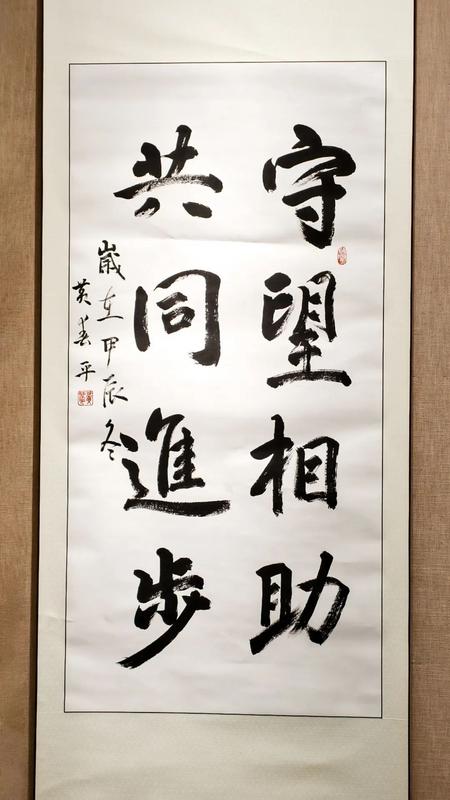 守望相助
共同進步
歲在甲辰冬
黃春平